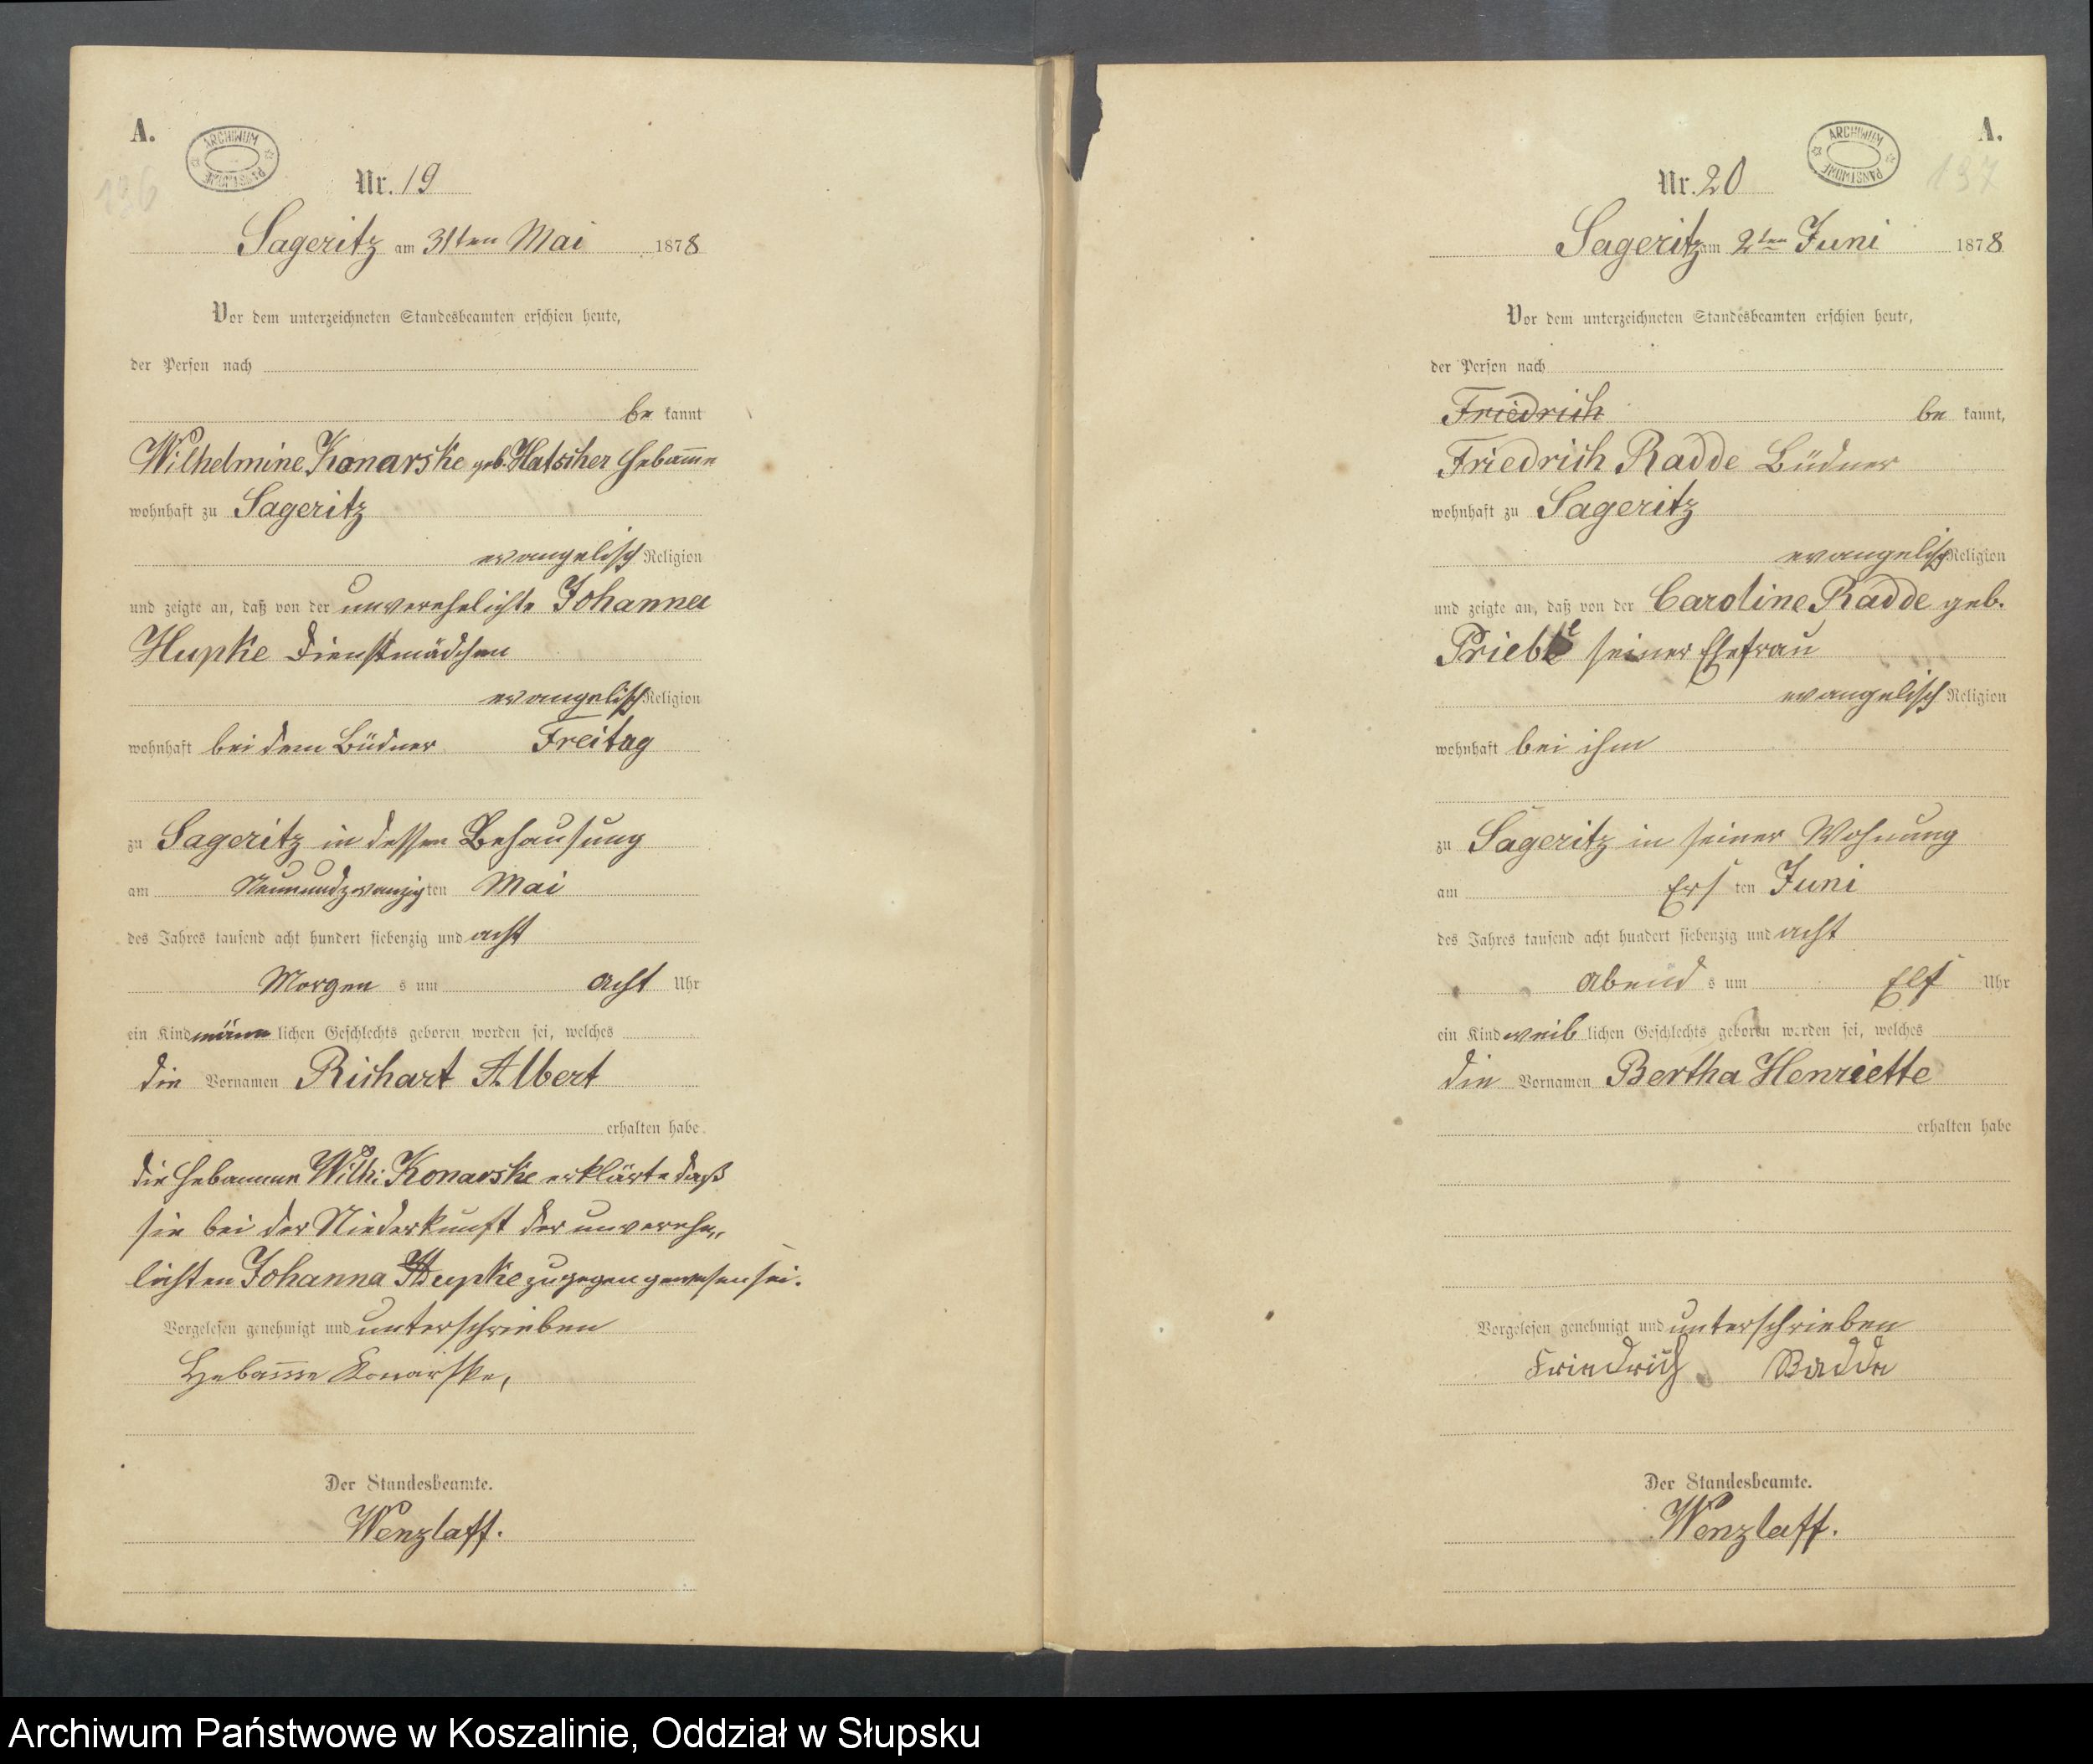 A.
ARCHIWUM PAŃSTWOWE
136
Nr. 19
Sageritz am 31ten Mai 1878
Vor dem unterzeichneten Standesbeamten erschien heute,
der Person nach
be kannt
Wilhelmine Konarske geb. Hatscher Hebam̅e
wohnhaft zu Sageritz
evangelisch Religion
und zeigte an, daß von der unverehelichte Johanna
Hupke Dienstmädchen
evangelisch Religion
wohnhaft bei dem Büdner Freitag
zu Sageritz in dessen Behausung
am Neunundzwanzigten Mai
des Jahres tausend acht hundert siebenzig und acht
Morgen s um acht Uhr
ein Kind männ lichen Geschlechts geboren worden sei, welches
die Vornamen Richart Albert
erhalten habe.
die Hebamme Wilh: Konarske erklärte daß
sie bei der Niederkunft der unvereh„
lichten Johanna Hupke zugegen gewesen sei.
Vorgelesen genehmigt und unterschrieben
Hebam̅e Konarske,
Der Standesbeamte.
Wenzlaff.
A.
ARCHIWUM PAŃSTWOWE
137
Nr. 20
Sageritz am 2ten Juni 1878
Vor dem unterzeichneten Standesbeamten erschien heute,
der Person nach
Friedrich be kannt,
Friedrich Radde Büdner
wohnhaft zu Sageritz
evangelisch Religion
und zeigte an, daß von der Caroline Radde geb.
Priebe seiner Ehefrau
evangelisch Religion
wohnhaft bei ihm
zu Sageritz in seiner Wohnung
am Ersten Juni
des Jahres tausend acht hundert siebenzig und acht
Abend s um Elf Uhr
ein Kind weib lichen Geschlechts geboren worden sei, welches
die Vornamen Bertha Henriette
erhalten habe
Vorgelesen genehmigt und unterschrieben
Friedrich Radde
Der Standesbeamte.
Wenzlaff.
Archiwum Państwowe w Koszalinie, Oddział w Słupsku